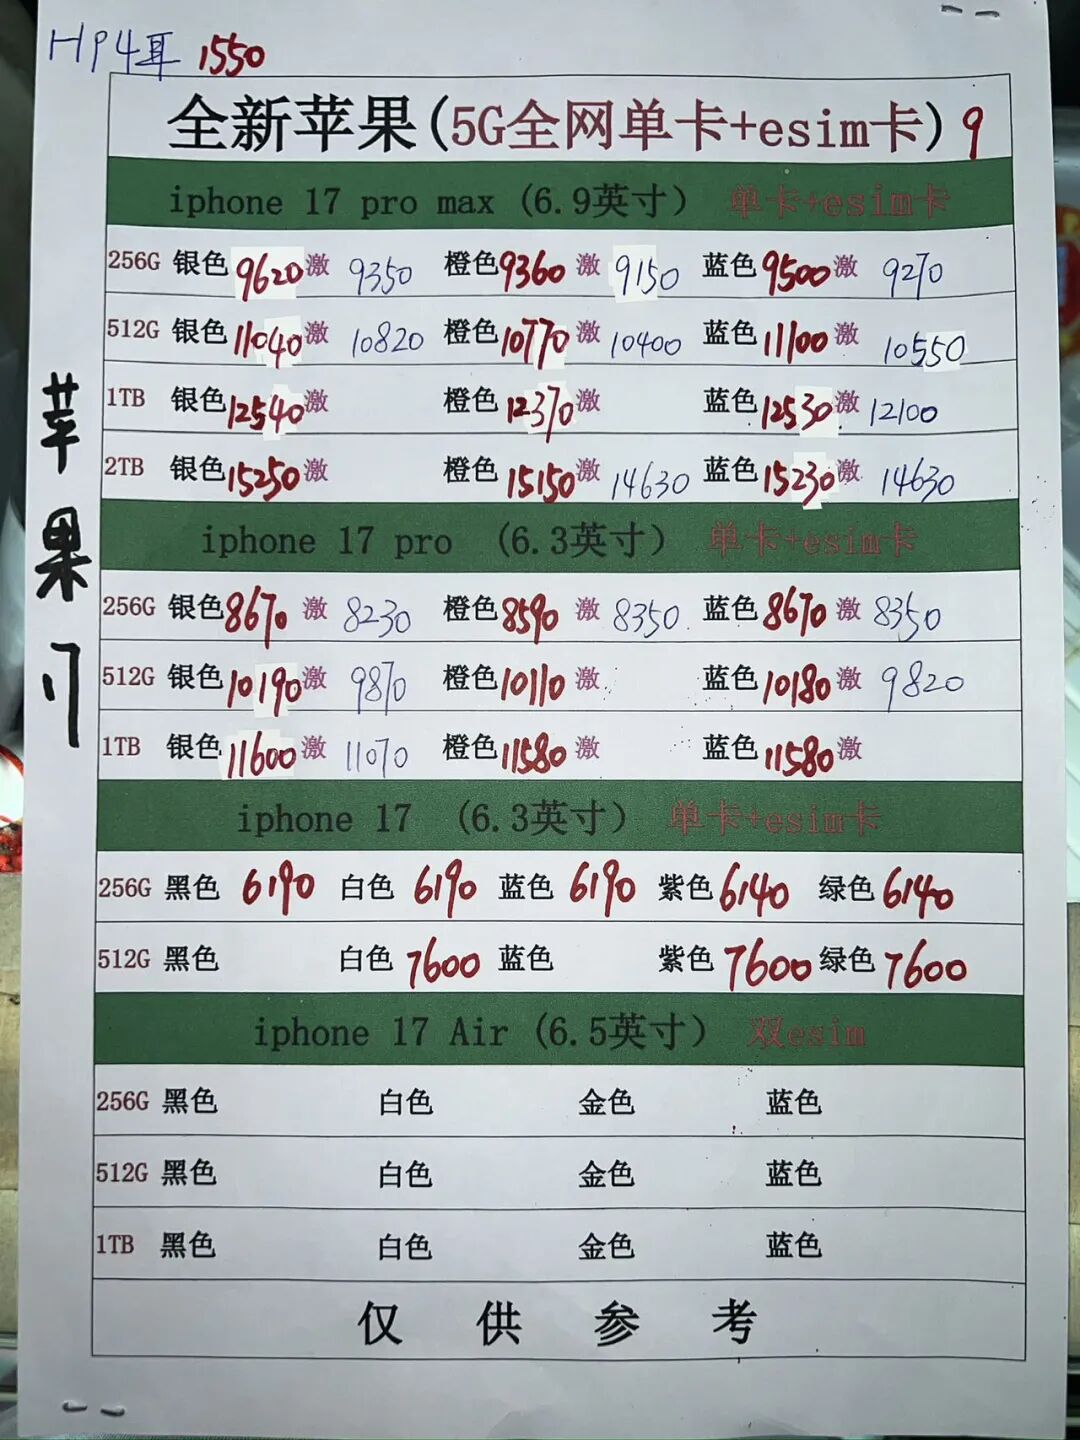 HP4耳 1550
全新苹果(5G全网单卡+esim卡) 9
iphone 17 pro max (6.9英寸) 单卡+esim卡
256G 银色 9620 激 9350 橙色 9360 激 9150 蓝色 9500 激 9270
512G 银色 11040 激 10820 橙色 10770 激 10400 蓝色 11100 激 10550
1TB 银色 12540 激 橙色 12370 激 蓝色 12530 激 12100
2TB 银色 15250 激 橙色 15150 激 14630 蓝色 15230 激 14630
iphone 17 pro (6.3英寸) 单卡+esim卡
256G 银色 8670 激 8230 橙色 8590 激 8350 蓝色 8670 激 8350
512G 银色 10190 激 9870 橙色 10110 激 蓝色 10180 激 9820
1TB 银色 11600 激 11070 橙色 11580 激 蓝色 11580 激
iphone 17 (6.3英寸) 单卡+esim卡
256G 黑色 6190 白色 6190 蓝色 6190 紫色 6140 绿色 6140
512G 黑色 白色 7600 蓝色 紫色 7600 绿色 7600
iphone 17 Air (6.5英寸) 双esim
256G 黑色 白色 金色 蓝色
512G 黑色 白色 金色 蓝色
1TB 黑色 白色 金色 蓝色
仅供参考
苹果17